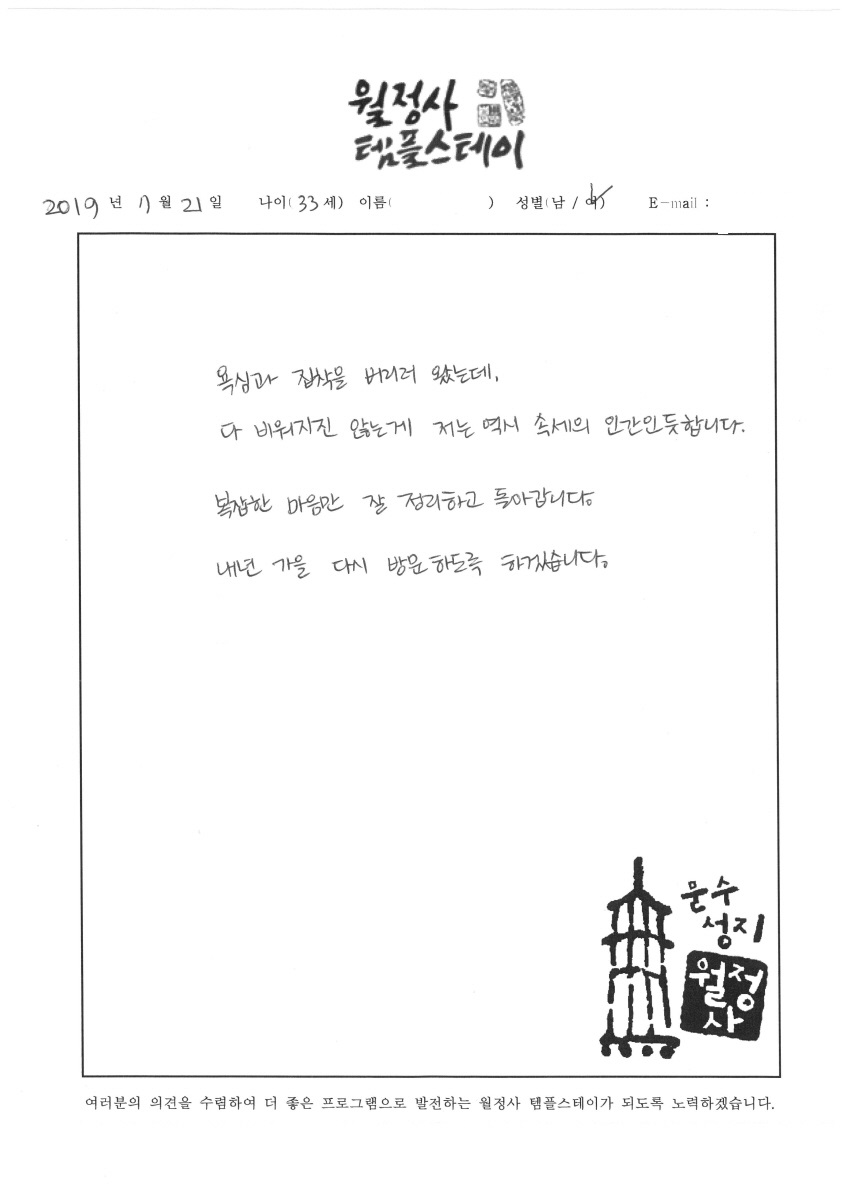 월정사
템플스테이
2019 년 11 월 21 일 나이( 33 세) 이름( ) 성별(남 / 여) E-mail :
욕심과 집착을 버리러 왔는데,
다 비워지진 않는게 저는 역시 속세의 인간인듯합니다.
복잡한 마음만 잘 정리하고 돌아갑니다.
내년 가을 다시 방문하도록 하겠습니다.
문수
성지
월정
사
여러분의 의견을 수렴하여 더 좋은 프로그램으로 발전하는 월정사 템플스테이가 되도록 노력하겠습니다.